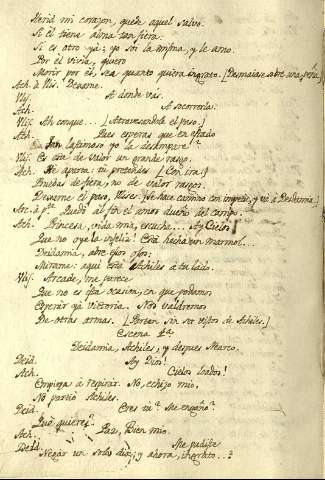 Herid mi corazon, quede aquel salvo.
Si él tiene alma tan fiera.
Si es otro yá; yo soi la misma, y le amo.
Por él vivia, quiero
Morir por él, sea quanto quiera ingrato. [Desmaiase sobre una peña]
Ach. á Ulis. Dexame.
Ulis. A donde vas.
Ach. A socorrerla.
Ulis. Ah conque... [Atravesandole el paso.]
Ach. Pues esperas que en estado
Tan lastimoso yo la desampare?
Ulis. Es este de valor un grande rasgo.
Ach. He aparta: tu pretendes [Con ira.]
Pruebas de fiera, no de valor rasgos.
Dexame el paso, Ulises. [Se hace camino con impetu, y vá á Deidamia.]
Arc. á pte. Quedó al fin el amor dueño del campo.
Ach. Princesa, vida mia, escucha... Ay Cielos!
Que no oye la infeliz! Está hecha un marmol...
Deidamia, abre esos ojos:
Mirame: aqui está Achiles a tu lado.
Ulis. Arcade, me parece
Que no es esta ocasion, en que podamos
Esperar yá victoria. Nos valdremos
De otras armas. [Parten sin ser vistos de Achiles.]
Escena 4ª
Deidamia, Achiles, y despues Nearco.
Deid. Ay Dios!
Ach. Cielos Loados!
Empieza a respirar. No, echizo mio,
No partió Achiles.
Deid. Eres tu? Me engaño?
Qué quieres?
Ach. Paz, Bien mio.
Deid. Me pudiste
Negar un solo dia; y ahora, ingrato..?